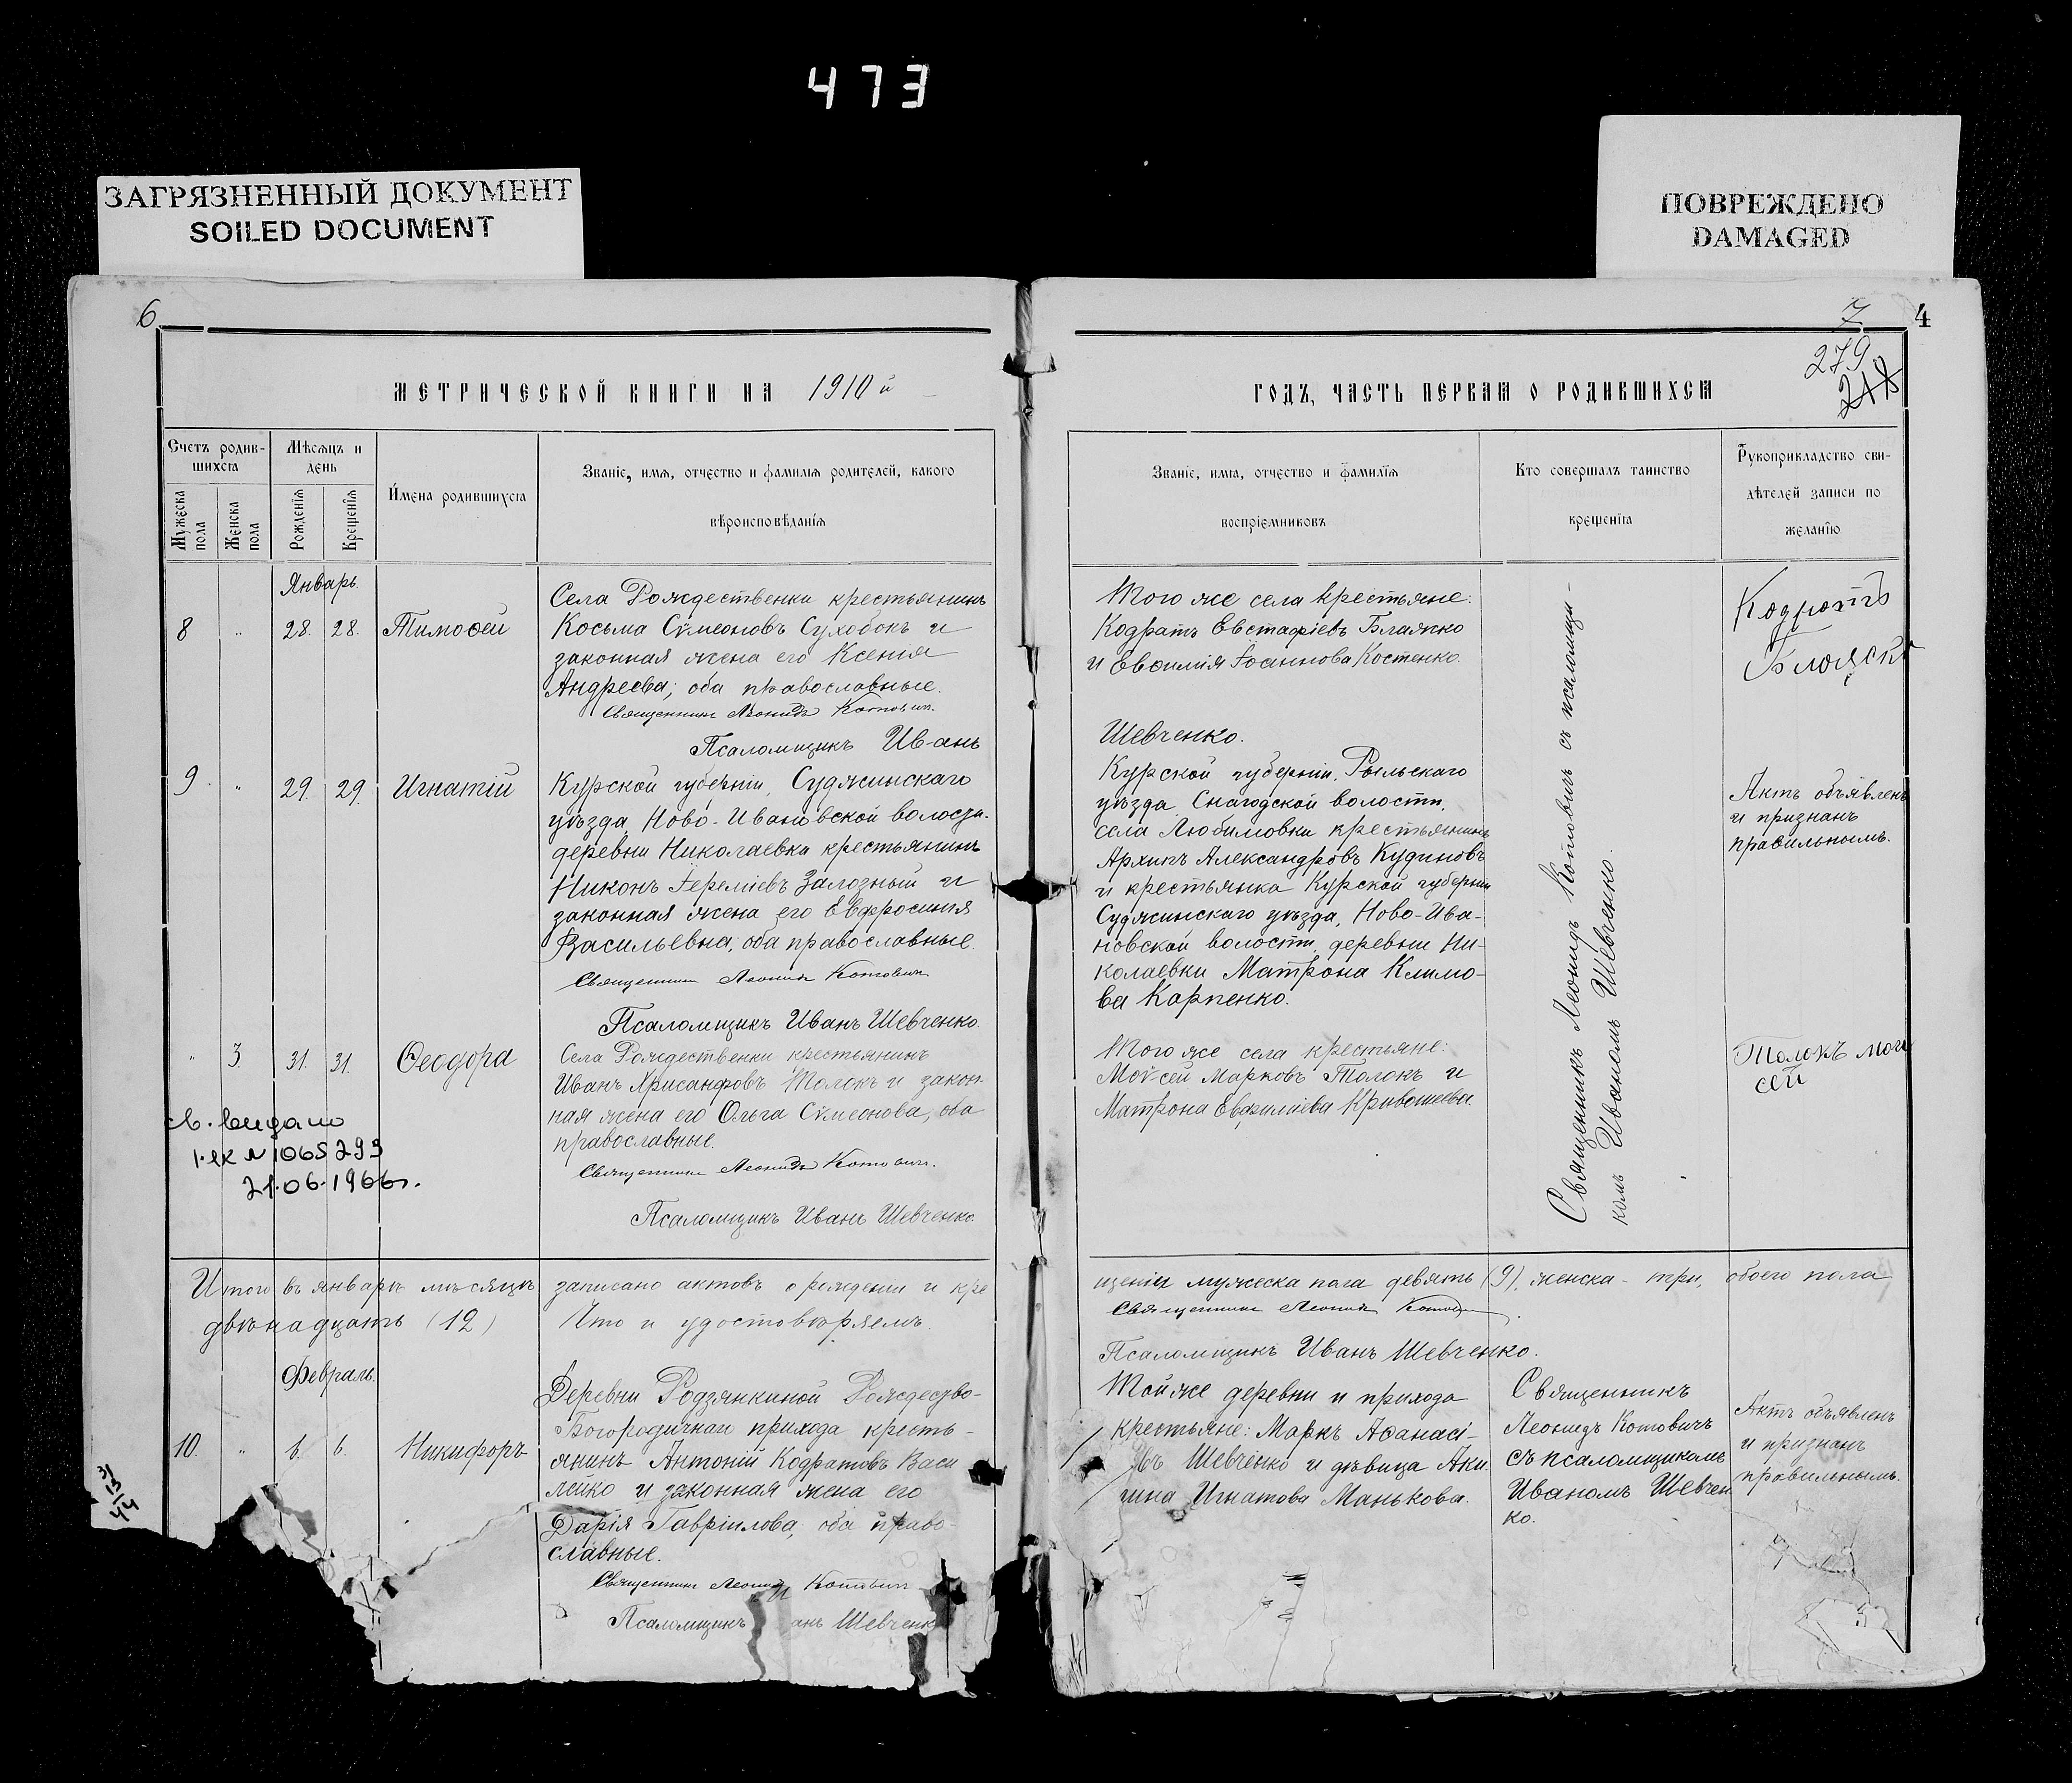 473
ЗАГРЯЗНЕННЫЙ ДОКУМЕНТ
SOILED DOCUMENT
ПОВРЕЖДЕНО
DAMAGED
6
МЕТРИЧЕСКОЙ КНИГИ НА 1910 й
Счетъ родив-
шихся
Мѣсяцъ и
день
Мужеска
пола
Женска
пола
Рожденія
Крещенія
Имена родившихся
Званіе, имя, отчество и фамилія родителей, какого
вѣроисповѣданія
Январь.
8 " 28. 28. Тимоѳей
Села Рождественки крестьянинъ
Косьма Сѵмеоновъ Сухобокъ и
законная жена его Ксенія
Андреева; оба православные.
Священникъ Леонидъ Котовичъ.
Псаломщикъ Ив-анъ
9 " 29. 29. Игнатій
Курской губерніи, Суджинскаго
уѣзда, Ново-Ивановской волости.
деревни Николаевки крестьянинъ
Никонъ Іереміевъ Залозный и
законная жена его Евфросинія
Васильевна; оба православные.
Священникъ Леонидъ Котовичъ
Псаломщикъ Иванъ Шевченко.
" 3. 31. 31. Ѳеодора
Села Рождественки крестьянинъ
Иванъ Хрисанфовъ Толокъ и закон-
ная жена его Ольга Сѵмеонова, оба
православные.
Священникъ Леонидъ Котовичъ.
Псаломщикъ Иванъ Шевченко.
св. видано
1.эк N 1065293
21.06.1966г.
Итого въ январѣ мѣсяцѣ записано актовъ о рожденіи и кре
двѣнадцать (12) Что и удостовѣряемъ.
Февраль.
10. " 6. 6. Никифоръ
Деревни Родзянкиной Рождество-
Богородичнаго прихода кресть-
янинъ Антоній Кодратовъ Васи
лейко и законная жена его
Дарія Гавріилова, оба право-
славные.
Священникъ Леонидъ Котовичъ
Псаломщикъ анъ Шевченк
7
4
279
ГОДЪ, ЧАСТЬ ПЕРВАЯ О РОДИВШИХСЯ
Званіе, имя, отчество и фамилія
воспріемниковъ
Кто совершалъ таинство
крещенія
Рукоприкладство сви-
дѣтелей записи по
желанію
Того же села крестьяне:
Кодратъ Евстафіевъ Блажко
и Евѳимія Іоаннова Костенко.
Шевченко.
Курской губерніи, Рыльскаго
уѣзда Снагодской волости,
села Любимовки крестьянинъ
Архипъ Александровъ Кудиновъ
и крестьянка Курской губерніи
Суджинскаго уѣзда, Ново-Ива-
новской волости, деревни Ни-
колаевки Матрона Климо-
ва Карпенко.
Того же села крестьяне:
Моѵсей Марковъ Толокъ и
Матрона
Священникъ Леонидъ Котовичъ съ псаломщи-
комъ Иваномъ Шевченко.
Кодротъ
Акть объявленъ
и признанъ
правильнымъ.
Толокъ мои
сей
щеніи мужеска пола девять (9), женска - три, обоего пола
Священникъ Леонидъ Котовичъ.
Псаломщикъ Иванъ Шевченко.
Той же деревни и прихода
крестьяне: Маркъ Аѳанасі-
евъ Шевченко и дѣвица Аки
лина Игнатова Манькова.
Священникъ
Леонидъ Котовичъ
съ псаломщикомъ
Иваномъ Шевчен
ко.
Актъ объявленъ
и признанъ
правильнымъ.